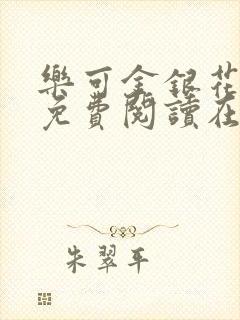 樂可金銀花
免費閱讀在
朱翠平